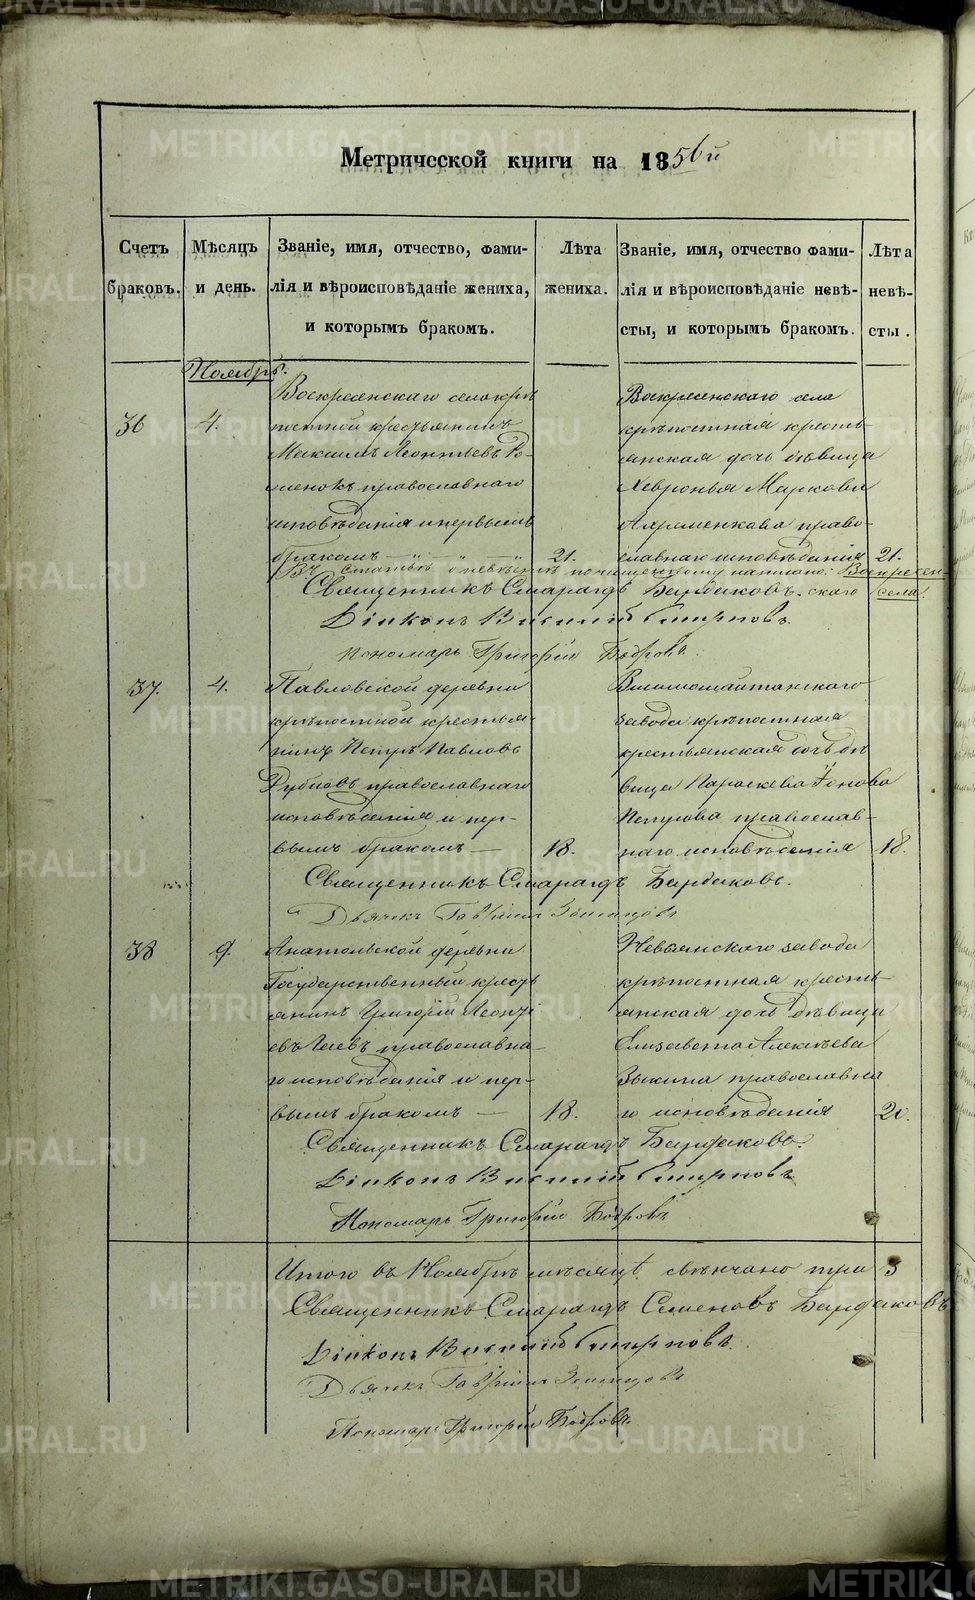 Метрической книги на 1856й
Счетъ браковъ.
Мѣсяцъ и день.
Званіе, имя, отчество, фами-
лія и вѣроисповѣданіе жениха,
и которымъ бракомъ.
Лѣта жениха.
Званіе, имя, отчество фами-
лія и вѣроисповѣданіе невѣ-
сты, и которымъ бракомъ.
Лѣта невѣ-
сты.
Ноябрь.
36
4.
Воскресенскаго села крѣ
постной крестьянинъ
Максимъ Леонтьевъ
православнаго
исповѣданія и первымъ
бракомъ
21.
Воскресенскаго села
крѣпостная кресть-
янская дочь дѣвица
Хевронья Маркова
право-
славнаго исповѣданія
21.
Въ статьѣ о невѣстѣ по чищенному написано: Воскресен-
скаго села
Священникъ Смарагдъ Бардаковъ.
Діаконъ Василій Смирновъ.
Пономарь Григорій Бобровъ.
37.
4.
Павловской деревни
крѣпостной крестья-
нинъ Петръ Павловъ
православнаго
исповѣданія и пер-
вымъ бракомъ
18.
Висимошайтанскаго
завода крѣпостная
крестьянская дочь дѣ
вица Параскева Іонова
Петрова православ-
наго исповѣданія
18.
Священникъ Смарагдъ Бардаковъ.
Дьячекъ Гавріилъ
38
9.
Анатольской деревни
Государственный кресть
янинъ Григорій Леонті
евъ Гаевъ православна-
го исповѣданія и пер-
вымъ бракомъ
18.
Невьянскаго завода
крѣпостная кресть-
янская дочь дѣвица
Елизавета Алексѣева
Зыкина православна
го исповѣданія
20.
Священникъ Смарагдъ Бардаковъ.
Діаконъ Василій Смирновъ
Пономарь Григорій Бобровъ
Итого въ Ноябрѣ мѣсяцѣ свѣнчано три 3
Священникъ Смарагдъ Семеновъ Бардаковъ
Діаконъ Василій Смирновъ.
Дьячекъ Гавріилъ
Пономарь Григорій Бобровъ
METRIKI.GASO-URAL.RU